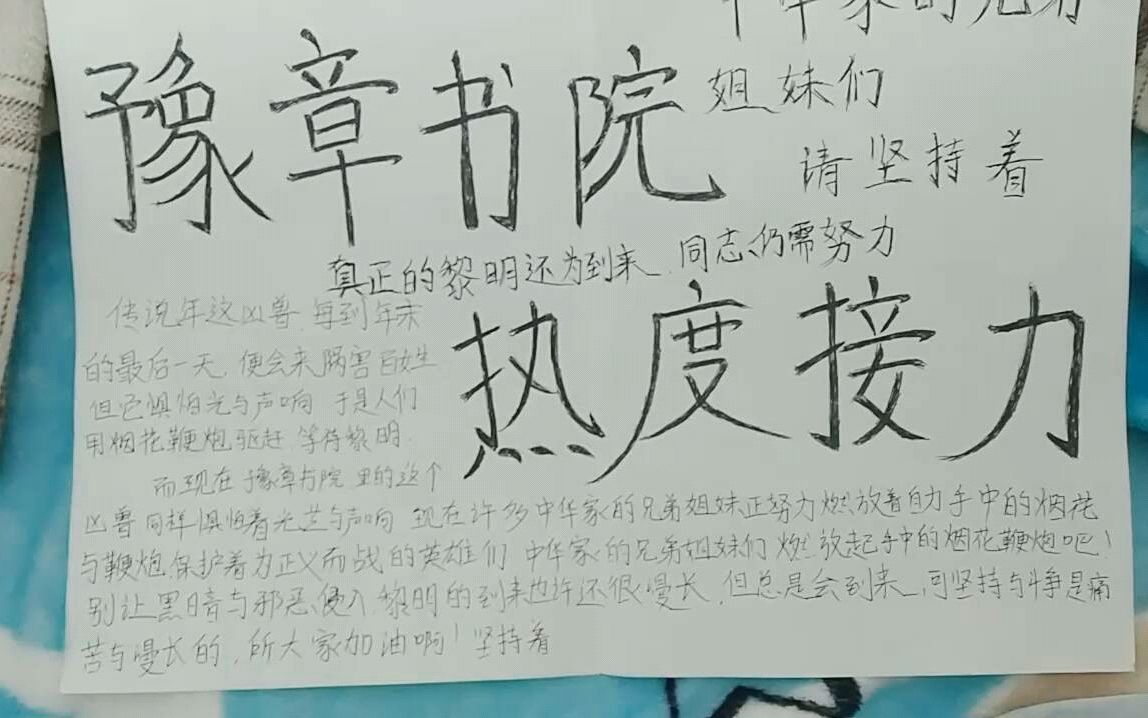 中华家的兄弟
姐妹们
请坚持着
豫章书院
真正的黎明还为到来,同志仍需努力
热度接力
传说年这凶兽,每到年末
的最后一天,便会来祸害百姓
但它惧怕光与声响 于是人们
用烟花鞭炮驱赶,等待黎明.
而现在豫章书院里的这个
凶兽同样惧怕着光芒与声响 现在许多中华家的兄弟姐妹正努力燃放着自力手中的烟花
与鞭炮,保护着为正义而战的英雄们 中华家的兄弟姐妹们 燃放起手中的烟花鞭炮吧!
别让黑暗与邪恶侵入,黎明的到来也许还很漫长,但总是会到来,可坚持与斗争是痛
苦与漫长的,所大家加油啊!坚持着